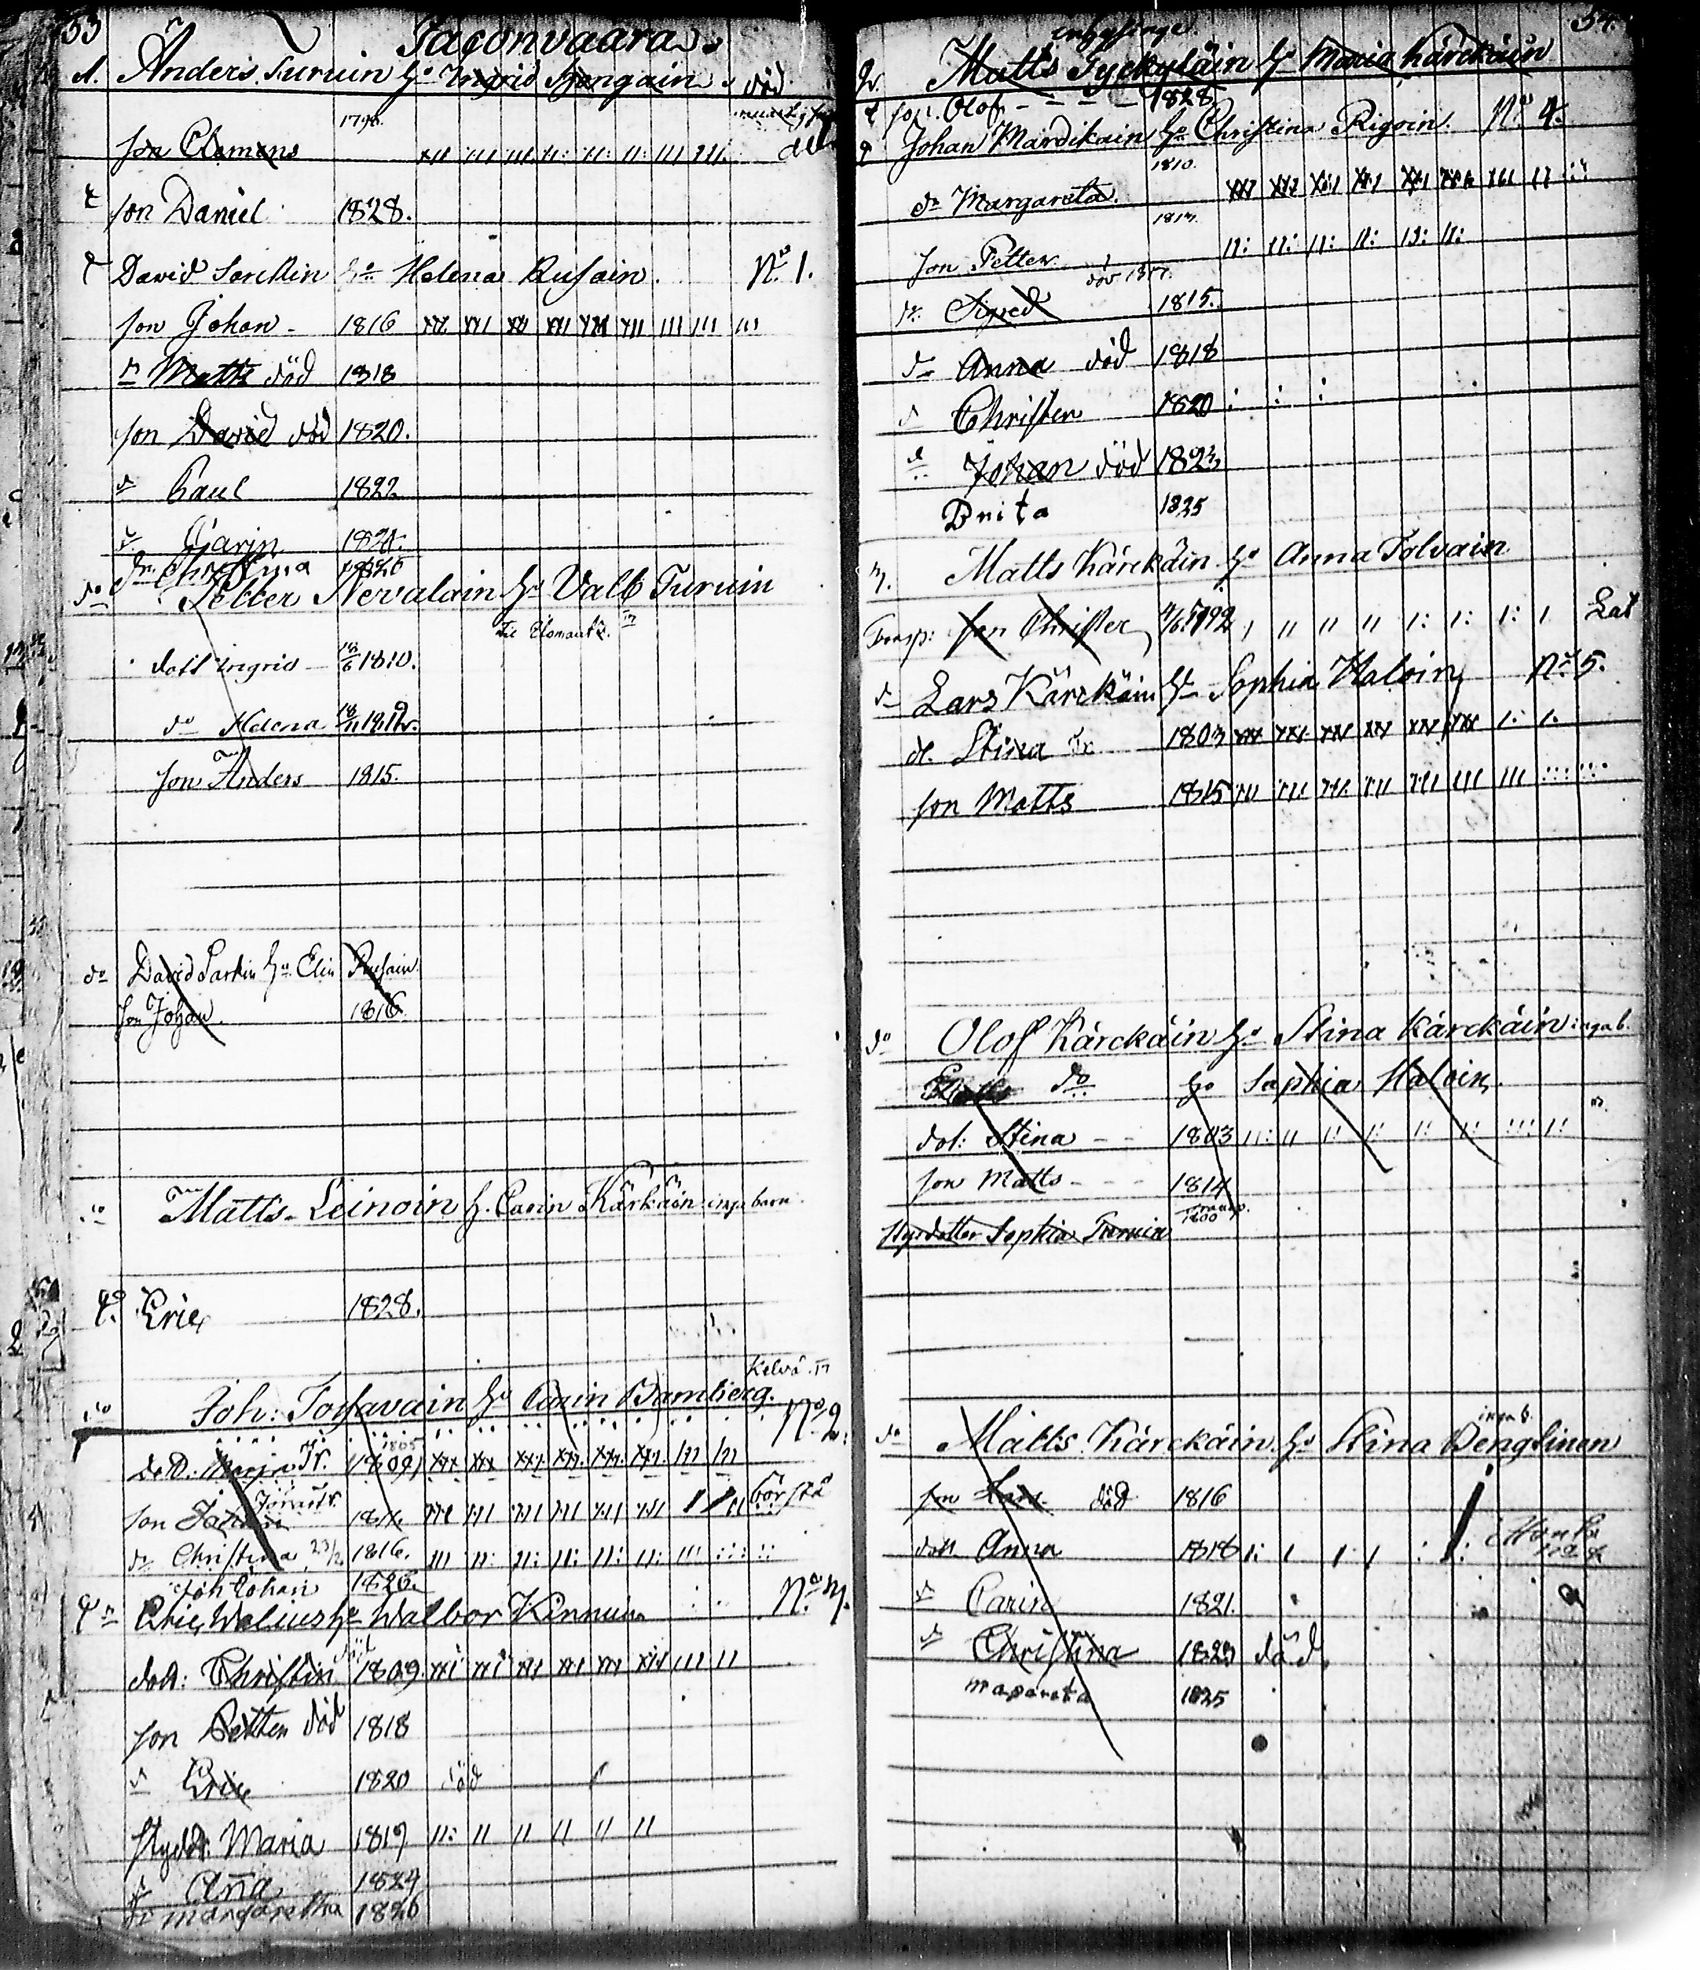 53
Jaconvaara
1. Anders Turuin h:o Ingrid Spongain död
1798.
son Clemens
son Daniel 1828.
David Sorckin h:o Helena Rusain. N:o 1.
son Johan 1816
Matts död 1818
son David död 1820.
Paul 1822
Carin 1824.
Christina 1826
d:o Petter Nevalain h:o Valb Turuin
til Ilomants.
dott Ingrid 18/6 1810.
d:o Helena 18/11 1812.
son Anders 1815.
d:o David Sarkin h:o Elin Rusain.
son Johan 1816
d:o Matts Leinoin h. Carin Kärkäin inga barn
Eric 1828.
Kelvå
d:o Joh: Tossavain h:o Carin Bamberg. N:o 2.
1805
dott. Maria 1809
son Johan
Christina 23/2 1816.
son Johan 1826.
Eric Walius h:o Walbor Kinnuin N:o 3.
död
dott: Christin 1809
son Petter död 1818
Eric 1820 död
stydr. Maria 1819
Aña 1824
Margaretha 1826
54.
2. Matts Tyckyläin h:o Maria Kärckäin
son Olof 1828
Johan Mardikain h:o Christina Rigoin. N:o 4.
1810.
d:o Margareta.
1813.
son Petter
död 1817.
Sigred 1815.
Anna död 1818
Christer 1820
Johan död 1823
Brita 1825
3. Matts Kärckäin h:o Anna Tolvain
Transp: son Christer 1792
Lars Kärckäin h:o Sophia Haloin N:o 5.
d. Stina 1803
son Matts 1815
d:o Olof Kärckäin h:o Stina Kärckäin inga b.
d:o h:o Sophia Haloin.
dot: Stina 1803
son Matts 1814
transp.
1800
Stydotter Sophia Turuin
inga b.
d:o Matts Kärckäin h:o Stina Bengtinen
son Lars död 1816
dott Anna 1818
Carin 1821.
Christina 1823 död.
Magareta 1825